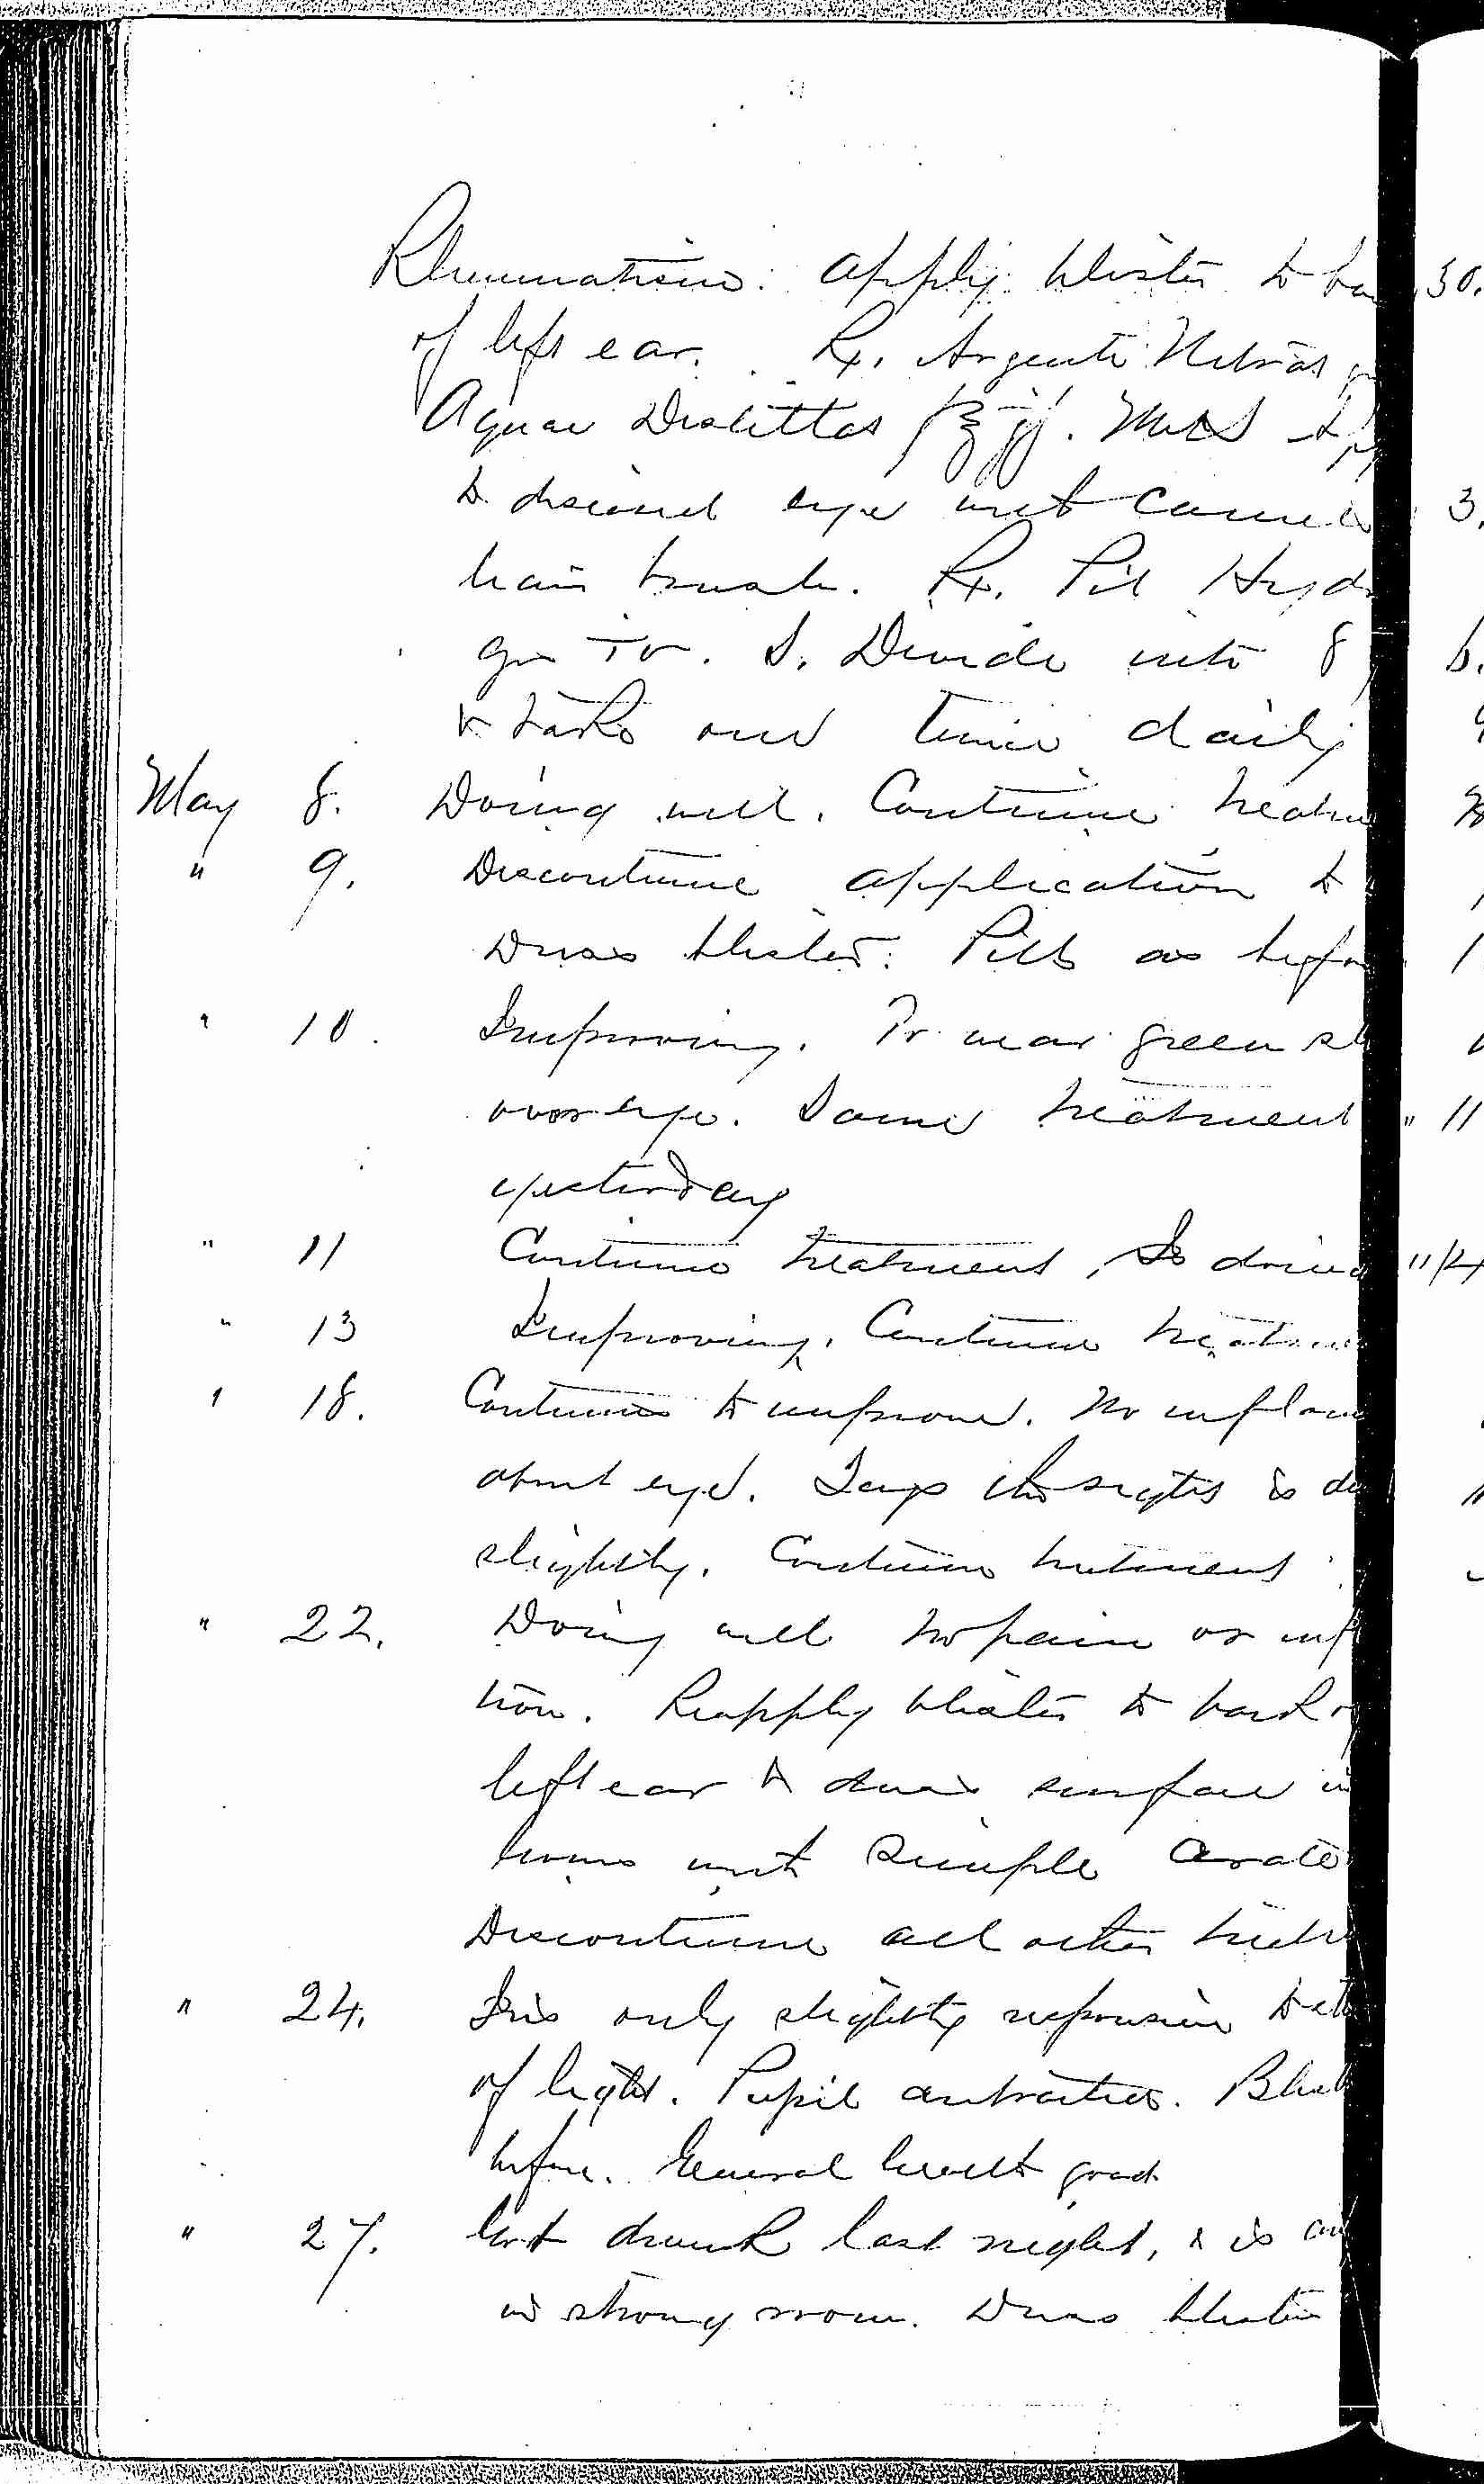 Rheumatism. Apply blister to ba
of left ear. Rx. Argenti Nitras g
Aquae Distillas f℥ij. M et S App
to diseased eye with camels
hair brush. Rx. Pil Hyd
grs iv. S. Divide into 8
& take one twice daily
May 8. Doing well. Continue treatm
" 9. Discontinue application to
Dress blister. Pills as befor
" 10. Improving. To wear green sh
over eye. Same treatment
yesterday
" 11 Continue treatment, Is doing
" 13 Improving. Continue treatm
" 18. Continues to improve. No inflam
about eye. Says the sight is de
slightly. Continue treatment
" 22. Doing well no pain or inf
tion. Reapply blister to back o
left ear & dress surface in
hours with Simple Cerate
Discontinue all other treat
" 24. Iris only slightly responsive to
of light. Pupil contracted. Blist
before. General health good
" 27. Got drunk last night, & is
in strong room. Dress blister
30.
3.
6.
" 11
" 14